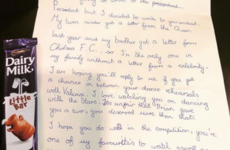 President but I decided to write to you instead.
My mum wrote got a letter from the Queen
last year and my brother got a letter from
Chelsea F.C., so I'm the only one in
my family without a letter from a celebrity.
I am hoping you'll reply to me if you get
a chance in between your dance rehearsals
with Valeria. I love watching you on dancing
with the Stars.
you a two, you deserved more than that.
I hope you do well in the competition, you're
one of my favourite's to watch
Dairy
Milk
little
bar